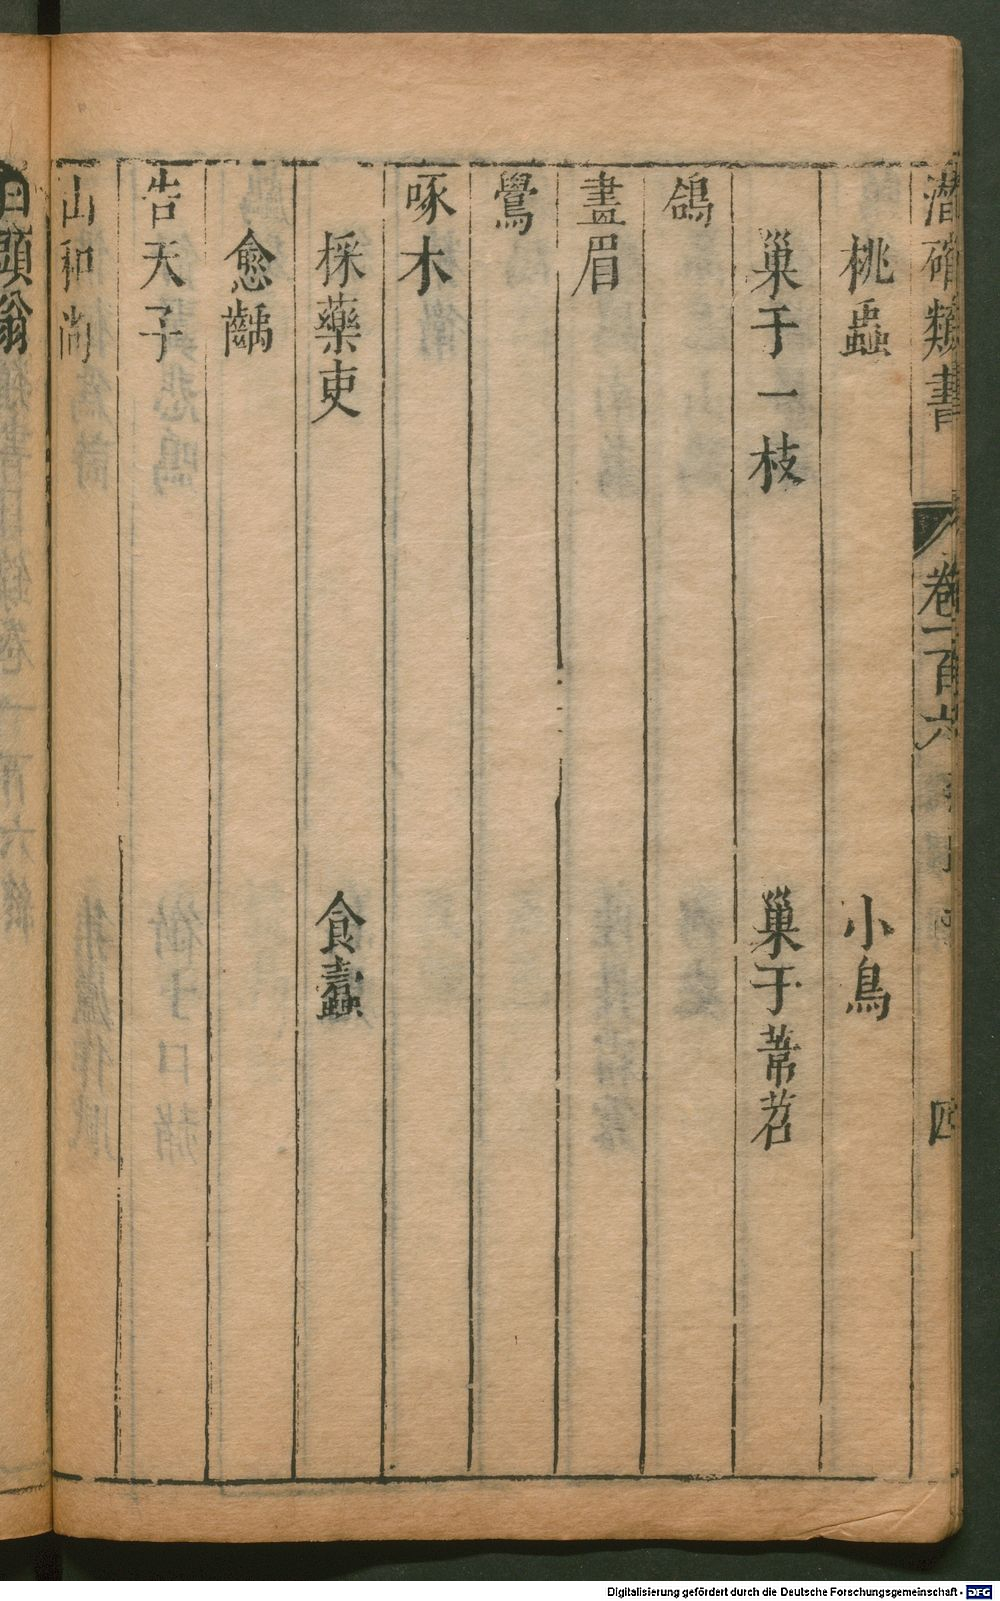 潛確類書 卷一百六 四
桃蟲 小鳥
巢于一枝 巢于葦苕
鴿
畫眉
鷽
啄木
採藥吏 食蠹
愈齲
告天子
山和尚
白頭翁
Digitalisierung gefördert durch die Deutsche Forschungsgemeinschaft - DFG